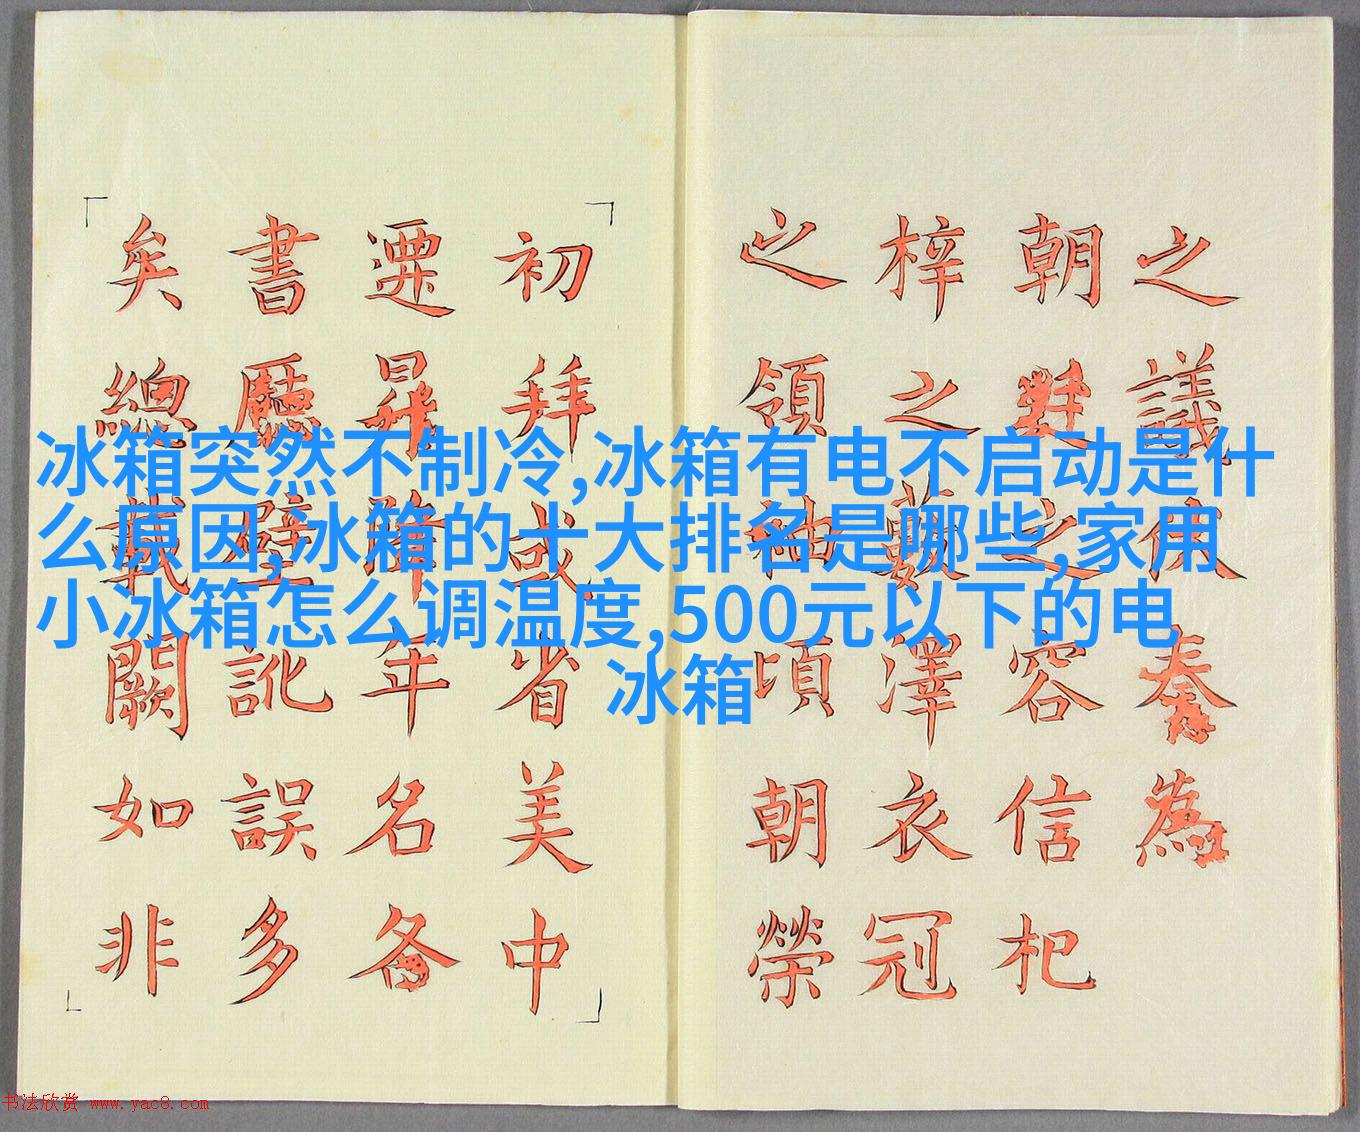 冰箱突然不制冷,冰箱有电不启动是什
么原因,冰箱的十大排名是哪些,家用
小冰箱怎么调温度,500元以下的电
冰箱
之議伏奏為
朝對之容信杞
梓之藪澤衣冠
之領袖頃朝榮
初拜或省美中
遷昇降年名各
書廳壁訛誤多
矣總載闕如非
书法欣赏 www.yac8.com